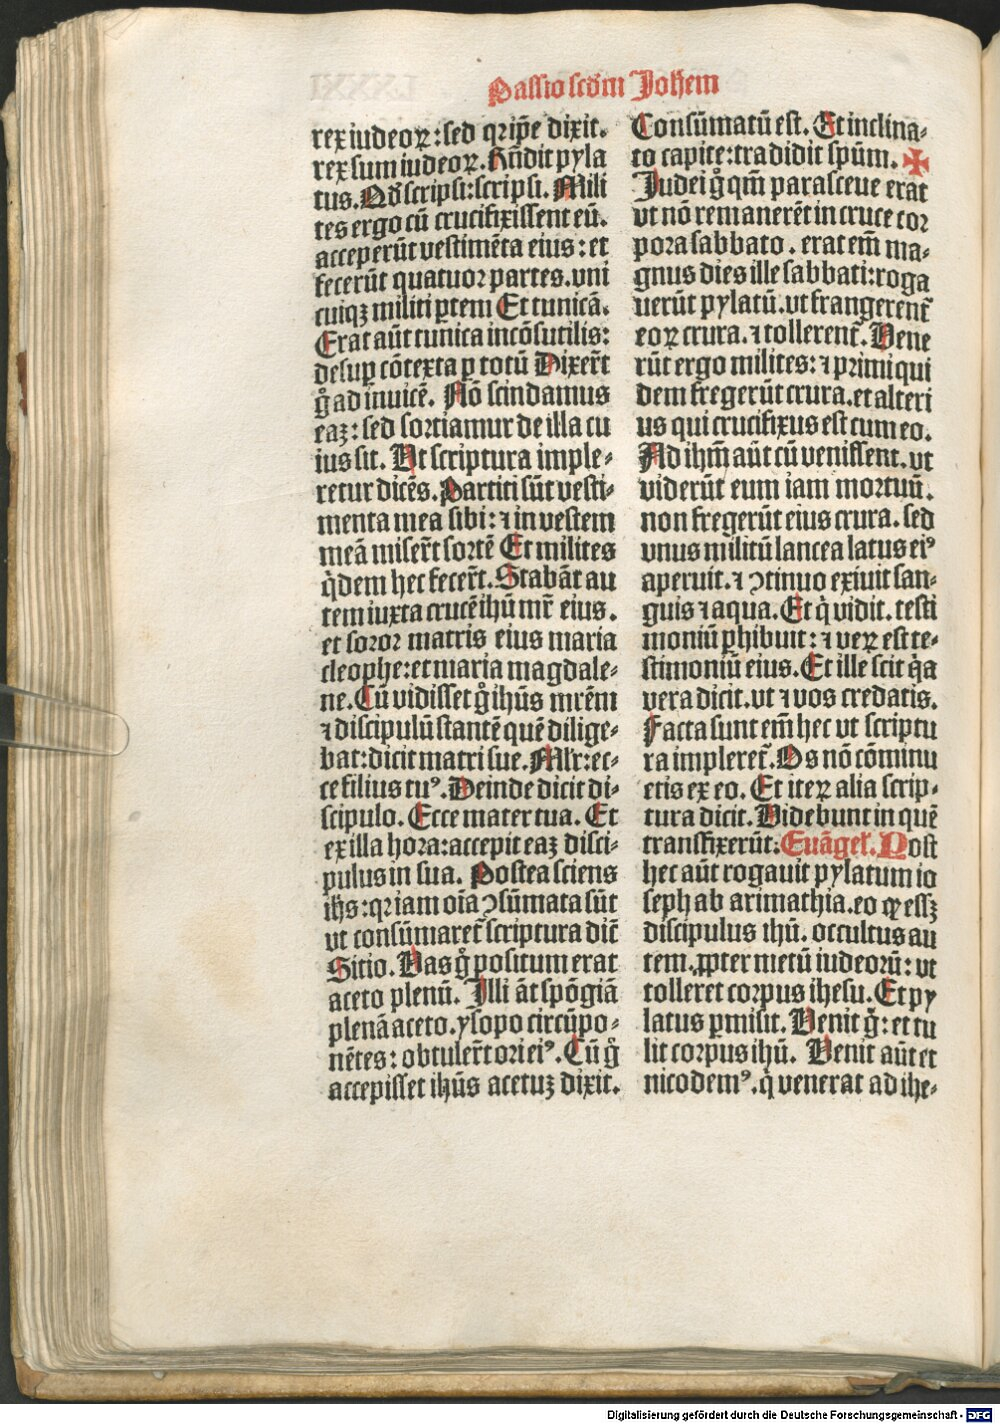 Passio scd̄m Johem
rex iudeoꝝ: sed qꝛ ip̄e dixit.
rex sum iudeoꝝ. Rn̄dit pyla
tus. Qd̄ scripsi: scripsi. Mili
tes ergo cū crucifixissent eū.
acceperūt vestimēta eius: et
fecerūt quatuor partes. vni
cuiqꝫ militi ꝑtem Et tunicā.
Erat aūt tunica incōsutilis:
desuꝑ cōtexta ꝑ totū Dixer̄t
gͦ ad inuicē. Nō scindamus
eaꝫ: sed sortiamur de illa cu
ius sit. Ut scriptura imple⸗
retur dicēs. Partiti sūt vesti⸗
menta mea sibi: ⁊ in vestem
meā miser̄t sortē Et milites
qͥdem hec fecer̄t. Stabāt au
tem iuxta crucē ihū mr̄ eius.
et soror matris eius maria
cleophe: et maria magdale⸗
ne. Cū vidisset gͦ ihūs mrēm
⁊ discipulū stantē quē dilige⸗
bat: dicit matri sue. Ml̄r: ec⸗
ce filius tuꝰ. Deinde dicit di⸗
scipulo. Ecce mater tua. Et
ex illa hora: accepit eaꝫ disci⸗
pulus in sua. Postea sciens
ihs̄: qꝛ iam oīa ꝯsūmata sūt
vt consūmaret᷑ scriptura dic̄
Sitio. Vas gͦ positum erat
aceto plenū. Illi āt spōgiā
plenā aceto. ysopo circūpo⸗
nētes: obtuler̄t ori eiꝰ. Cū gͦ
accepisset ihūs acetuꝫ dixit.
Consūmatū est. Et inclina⸗
to capite: tradidit spūm. ✠
Judei gͦ qm̄ parasceue erat
vt nō remanerēt in cruce cor
pora sabbato. erat em̄ ma⸗
gnus dies ille sabbati: roga
uerūt pylatū. vt frangerent᷑
eoꝝ crura. ⁊ tollerent᷑. Vene
rūt ergo milites: ⁊ primi qui
dem fregerūt crura. et alteri
us qui crucifixus est cum eo.
Ad ihm̄ aūt cū venissent. vt
viderūt eum iam mortuū.
non fregerūt eius crura. sed
vnus militū lancea latus eiꝰ
aperuit. ⁊ ꝯtinuo exiuit san⸗
guis ⁊ aqua. Et qͥ vidit. testi
moniū ꝑhibuit: ⁊ veꝝ est te⸗
stimoniū eius. Et ille scit qͥa
vera dicit. vt ⁊ vos credatis.
Facta sunt em̄ hec vt scriptu
ra impleret᷑. Os nō cōminu
etis ex eo. Et iteꝝ alia scrip⸗
tura dicit. Videbunt in quē
transfixerūt: Euāgel̄. Post
hec aūt rogauit pylatum io
seph ab arimathia. eo ꝙ essꝫ
discipulus ihū. occultus au
tem. ꝓpter metū iudeorū: vt
tolleret corpus ihesu. Et py
latus ꝑmisit. Venit gͦ: et tu
lit corpus ihū. Venit aūt et
nicodemꝰ. qͥ venerat ad ihe⸗
Digitalisierung gefördert durch die Deutsche Forschungsgemeinschaft - DFG